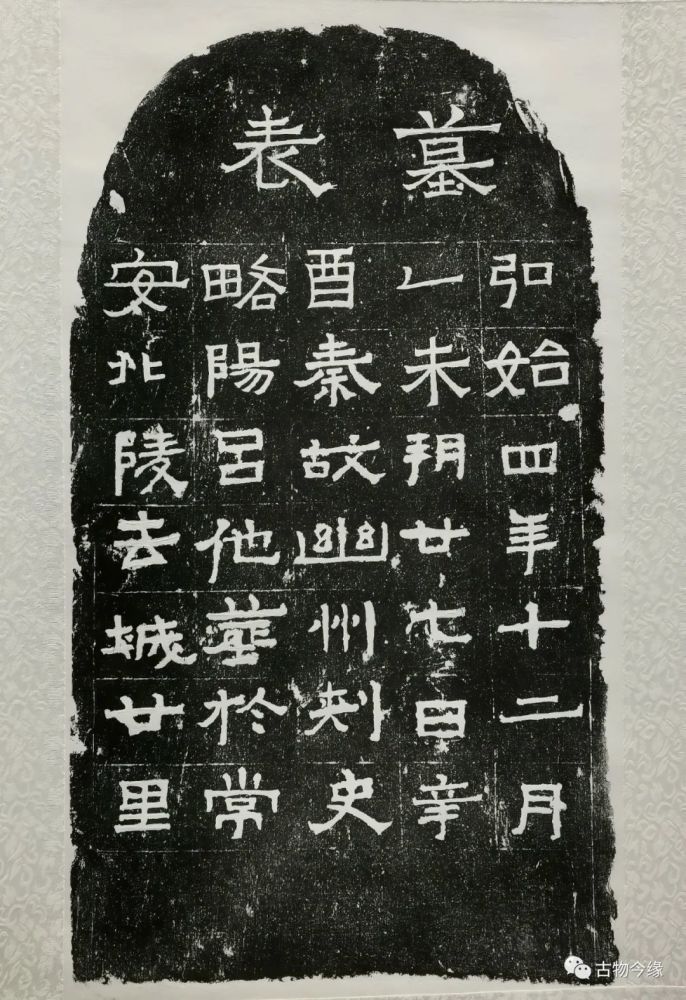 墓表
弘始四年十二月
乙未朔廿七日辛
酉秦故幽州刺史
略陽呂他葬於常
安北陵去城廿里
古物今缘